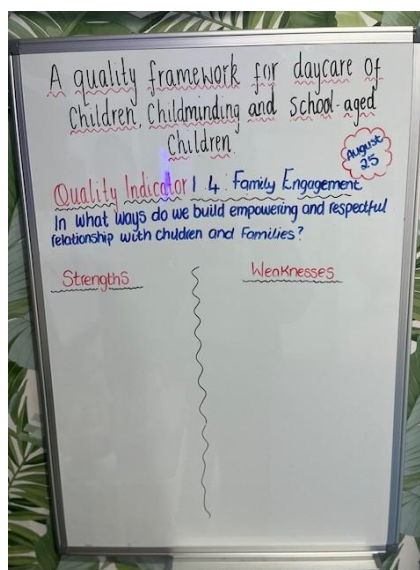 A quality framework for daycare of
Children, Childminding and School-aged
Children.
August
25
Quality Indicator 1.4: Family Engagement
In what ways do we build empowering and respectful
relationship with children and Families?
Strengths
Weaknesses